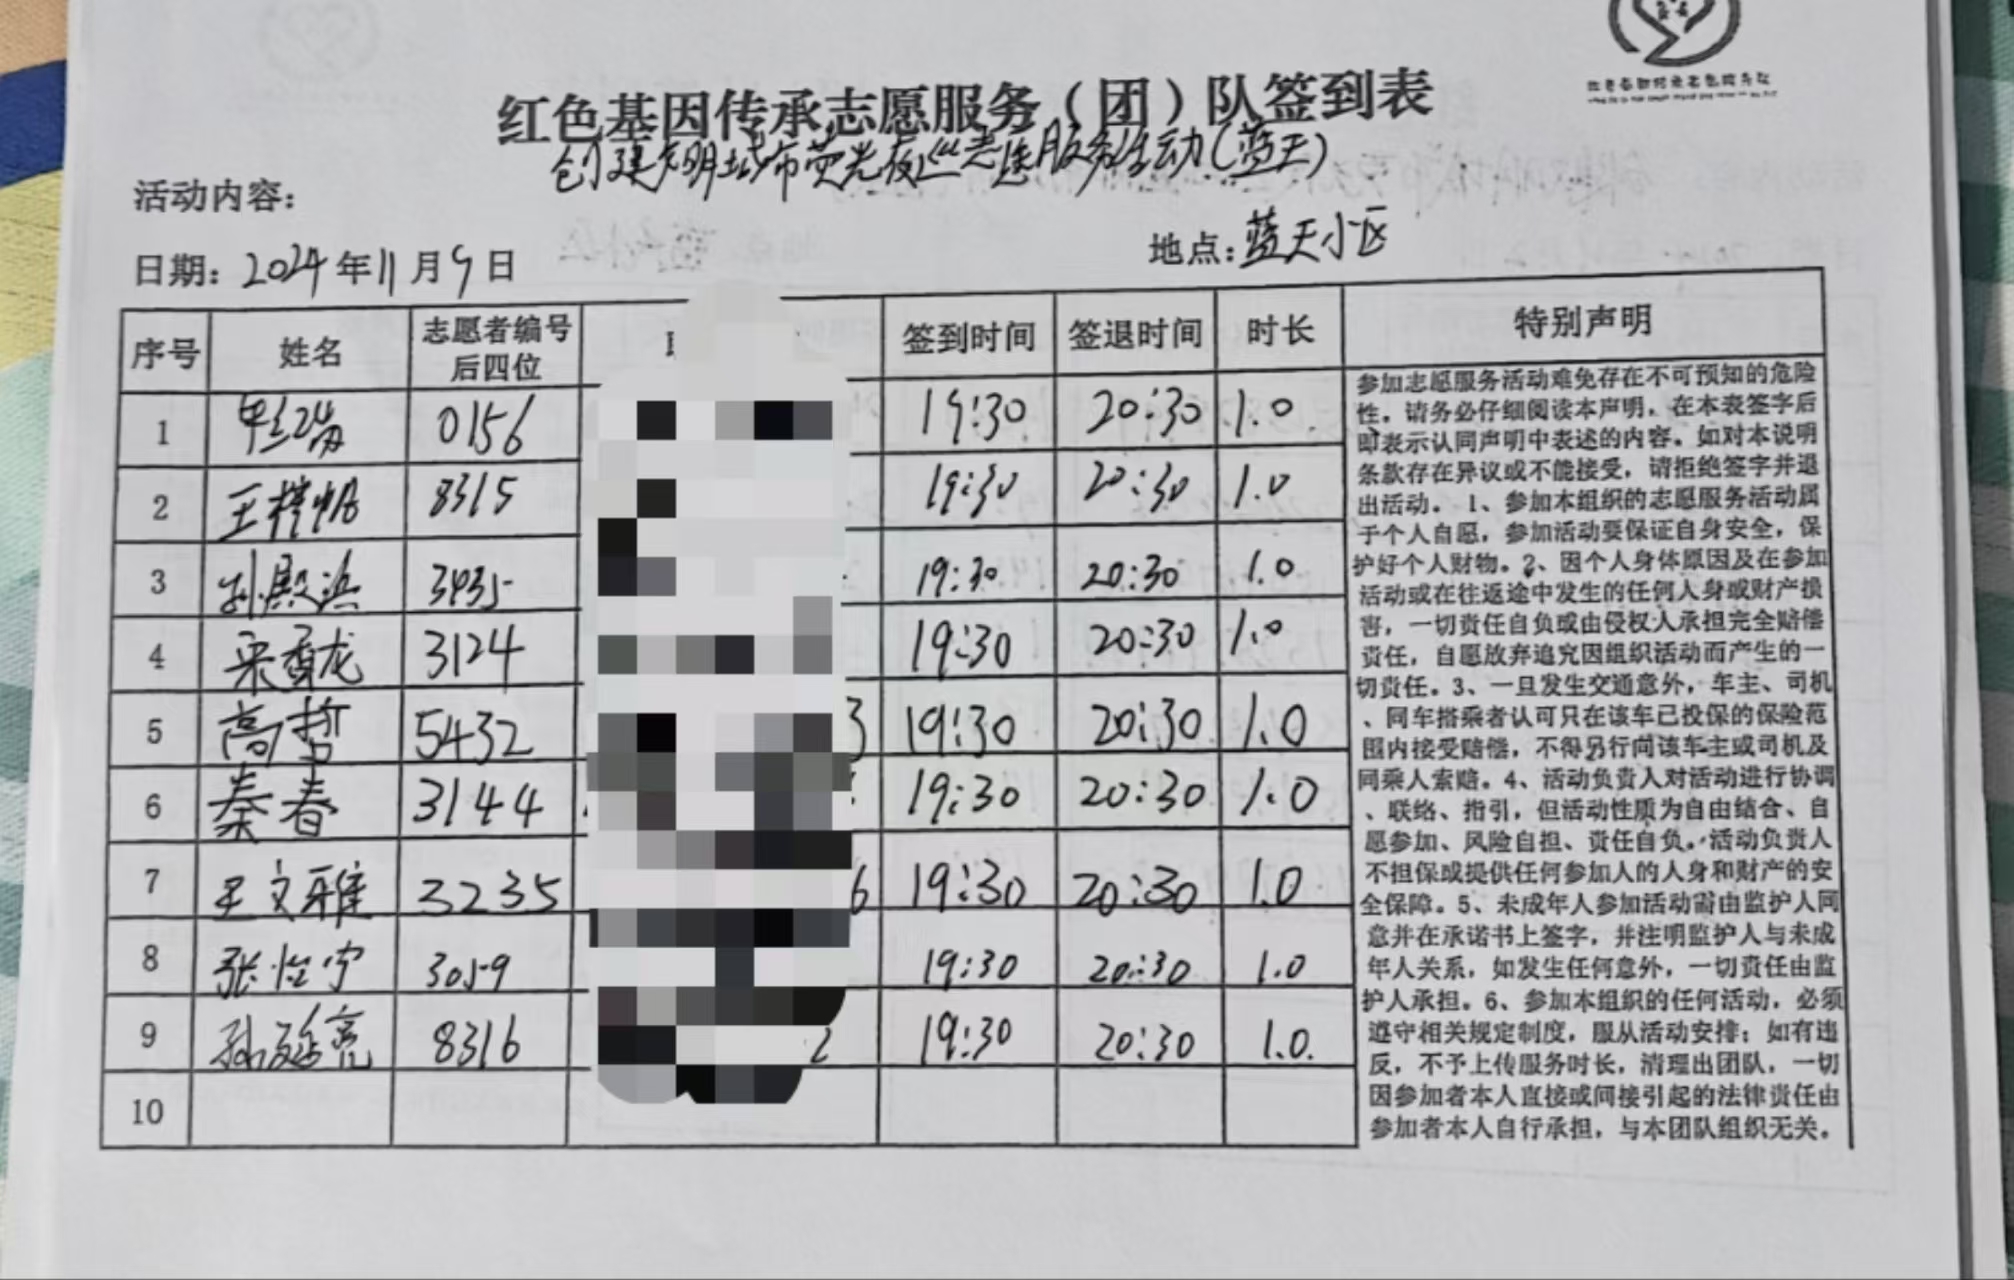 红色基因传承志愿服务（团）队签到表
创建文明城市荧光夜巡志愿服务活动(蓝天)
活动内容：
日期：2024年11月9日
地点：蓝天小区
序号 姓名 志愿者编号后四位 签到时间 签退时间 时长 特别声明
1 0156 19:30 20:30 1.0
2 王梓帆 8315 19:30 20:30 1.0
3 孙殿滨 3435 19:30 20:30 1.0
4 宋奋龙 3124 19:30 20:30 1.0
5 高哲 5432 3 19:30 20:30 1.0
6 秦春 3144 19:30 20:30 1.0
7 王文雅 3235 6 19:30 20:30 1.0
8 张怡宁 3059 19:30 20:30 1.0
9 孙延亮 8316 2 19:30 20:30 1.0.
10
参加志愿服务活动难免存在不可预知的危险
性，请务必仔细阅读本声明，在本表签字后
即表示认同声明中表述的内容。如对本说明
条款存在异议或不能接受，请拒绝签字并退
出活动。1、参加本组织的志愿服务活动属
于个人自愿，参加活动要保证自身安全，保
护好个人财物。2、因个人身体原因及在参加
活动或在往返途中发生的任何人身或财产损
害，一切责任自负或由侵权人承担完全赔偿
责任，自愿放弃追究因组织活动而产生的一
切责任。3、一旦发生交通意外，车主、司机
、同车搭乘者认可只在该车已投保的保险范
围内接受赔偿，不得另行向该车主或司机及
同乘人索赔。4、活动负责人对活动进行协调
、联络、指引，但活动性质为自由结合、自
愿参加、风险自担、责任自负。活动负责人
不担保或提供任何参加人的人身和财产的安
全保障。5、未成年人参加活动需由监护人同
意并在承诺书上签字，并注明监护人与未成
年人关系，如发生任何意外，一切责任由监
护人承担。6、参加本组织的任何活动，必须
遵守相关规定制度，服从活动安排；如有违
反，不予上传服务时长，清理出团队，一切
因参加者本人直接或间接引起的法律责任由
参加者本人自行承担，与本团队组织无关。